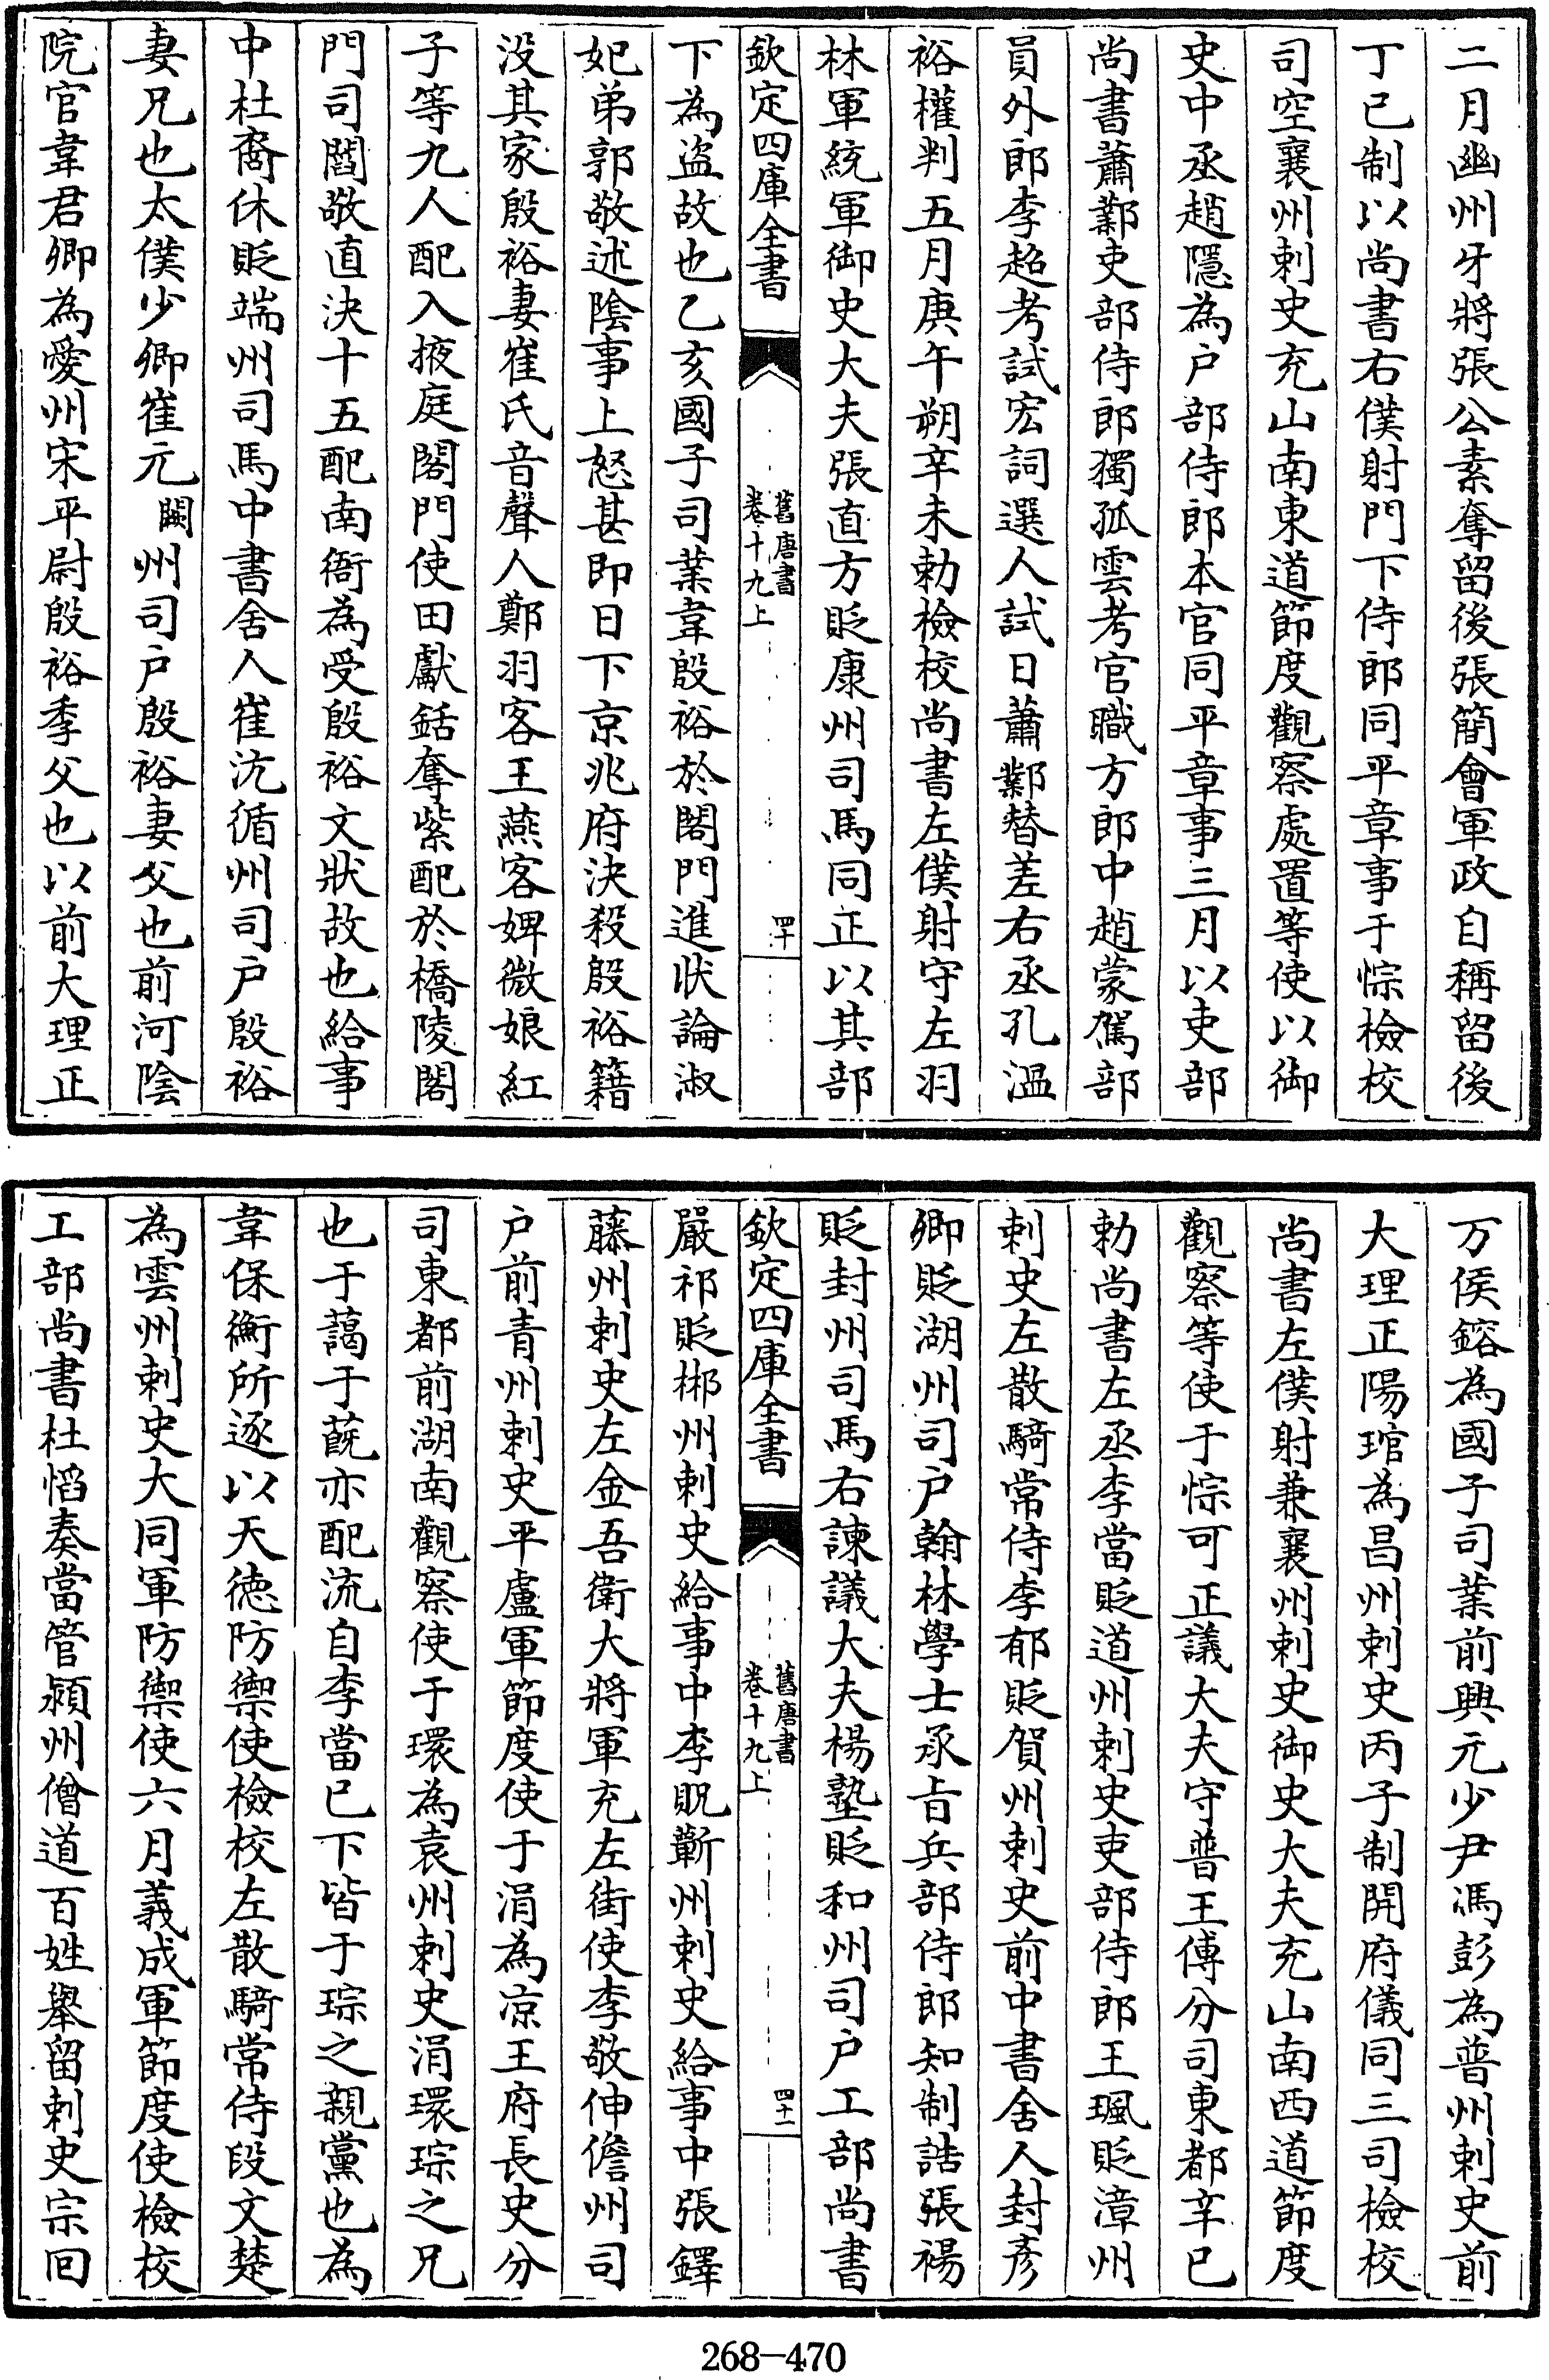 二月幽州牙將張公素奪留後張簡會軍政自稱留後
丁巳制以尚書右僕射門下侍郎同平章事于悰檢校
司空襄州刺史充山南東道節度觀察處置等使以御
史中丞趙隱為户部侍郎本官同平章事三月以吏部
尚書蕭鄴吏部侍郎獨孤雲考官職方郎中趙蒙駕部
員外郎李超考試宏詞選人試日蕭鄴替差右丞孔溫
裕權判五月庚午朔辛未勅檢校尚書左僕射守左羽
林軍統軍御史大夫張直方貶康州司馬同正以其部
欽定四庫全書
舊唐書
卷十九上
四十
下為盜故也乙亥國子司業韋殷裕於閤門進狀論淑
妃弟郭敬述陰事上怒甚即日下京兆府決殺殷裕籍
没其家殷裕妻崔氏音聲人鄭羽客王燕客婢微娘紅
子等九人配入掖庭閤門使田獻銛奪紫配於橋陵閤
門司閻敬直決十五配南衙為受殷裕文狀故也給事
中杜裔休貶端州司馬中書舍人崔沆循州司户殷裕
妻兄也太僕少卿崔元闕州司户殷裕妻父也前河陰
院官韋君卿為愛州宋平尉殷裕季父也以前大理正
万俟鎔為國子司業前興元少尹馮彭為普州刺史前
大理正陽琯為昌州刺史丙子制開府儀同三司檢校
尚書左僕射兼襄州刺史御史大夫充山南西道節度
觀察等使于悰可正議大夫守普王傅分司東都辛巳
勅尚書左丞李當貶道州刺史吏部侍郎王諷貶漳州
刺史左散騎常侍李郁貶賀州刺史前中書舍人封彥
卿貶湖州司户翰林學士承旨兵部侍郎知制誥張裼
貶封州司馬右諫議大夫楊塾貶和州司户工部尚書
欽定四庫全書
舊唐書
卷十九上
四十一
嚴祁貶郴州刺史給事中李貺蘄州刺史給事中張鐸
藤州刺史左金吾衛大將軍充左街使李敬伸儋州司
户前青州刺史平盧軍節度使于涓為凉王府長史分
司東都前湖南觀察使于瓌為袁州刺史涓瓌琮之兄
也于藹于蔇亦配流自李當巳下皆于琮之親黨也為
韋保衡所逐以天徳防禦使檢校左散騎常侍段文楚
為雲州刺史大同軍防禦使六月義成軍節度使檢校
工部尚書杜慆奏當管潁州僧道百姓舉留刺史宗回
268-470